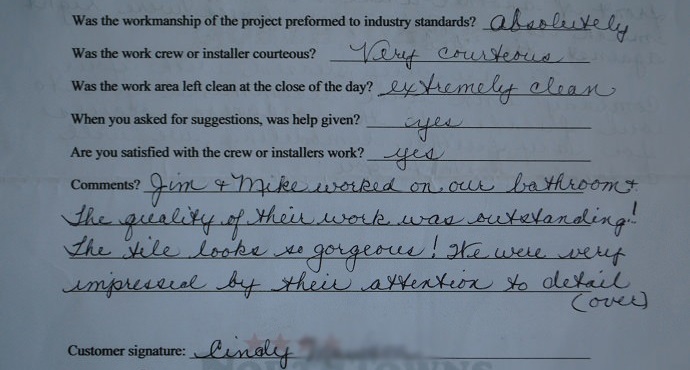 Was the workmanship of the project preformed to industry standards? Absolutely
Was the work crew or installer courteous? Very courteous
Was the work area left clean at the close of the day? extremely clean
When you asked for suggestions, was help given? yes
Are you satisfied with the crew or installers work? yes
Comments? Jim & Mike worked on our bathroom &
the quality of their work was outstanding!
The tile looks so gorgeous! We were very
impressed by their attention to detail
(over)
Customer signature: Cindy